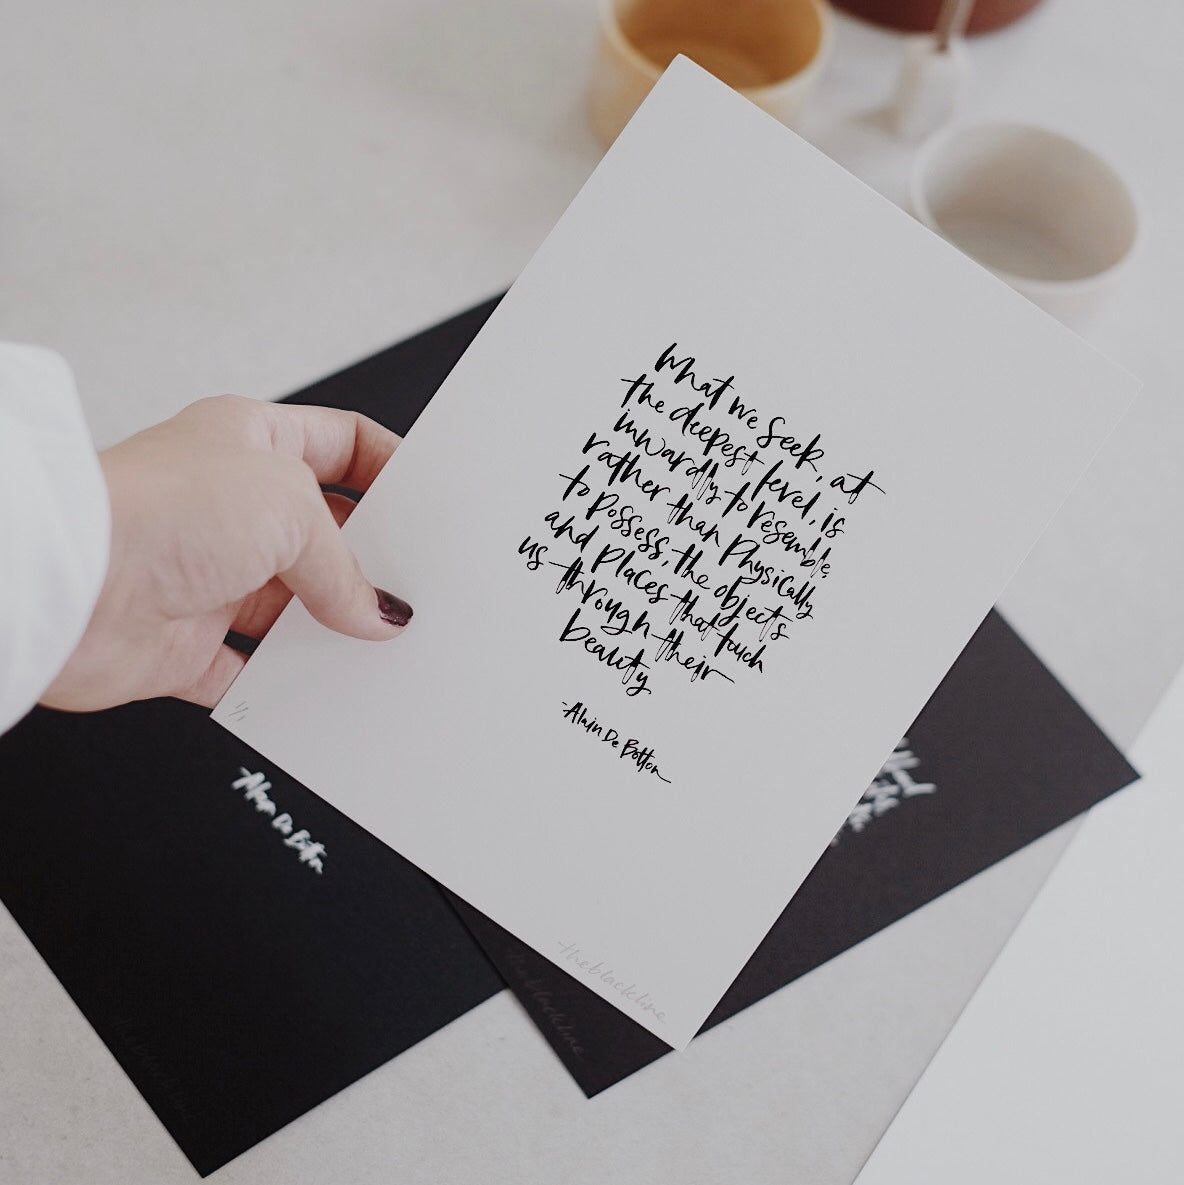 What we seek, at
the deepest level, is
inwardly to resemble,
rather than physically
to possess, the objects
and places that touch
us through their
beauty
-Alain De Botton
1/1
theblackline
Alain De Botton
theblackline
theblackline